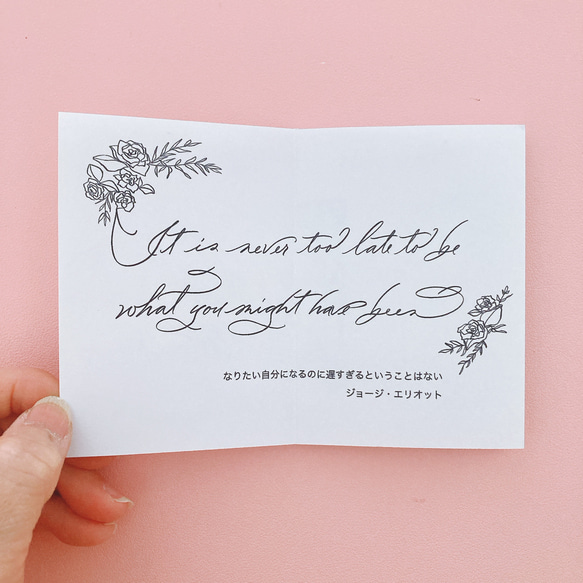 It is never too late to be
what you might have been
なりたい自分になるのに遅すぎるということはない
ジョージ・エリオット